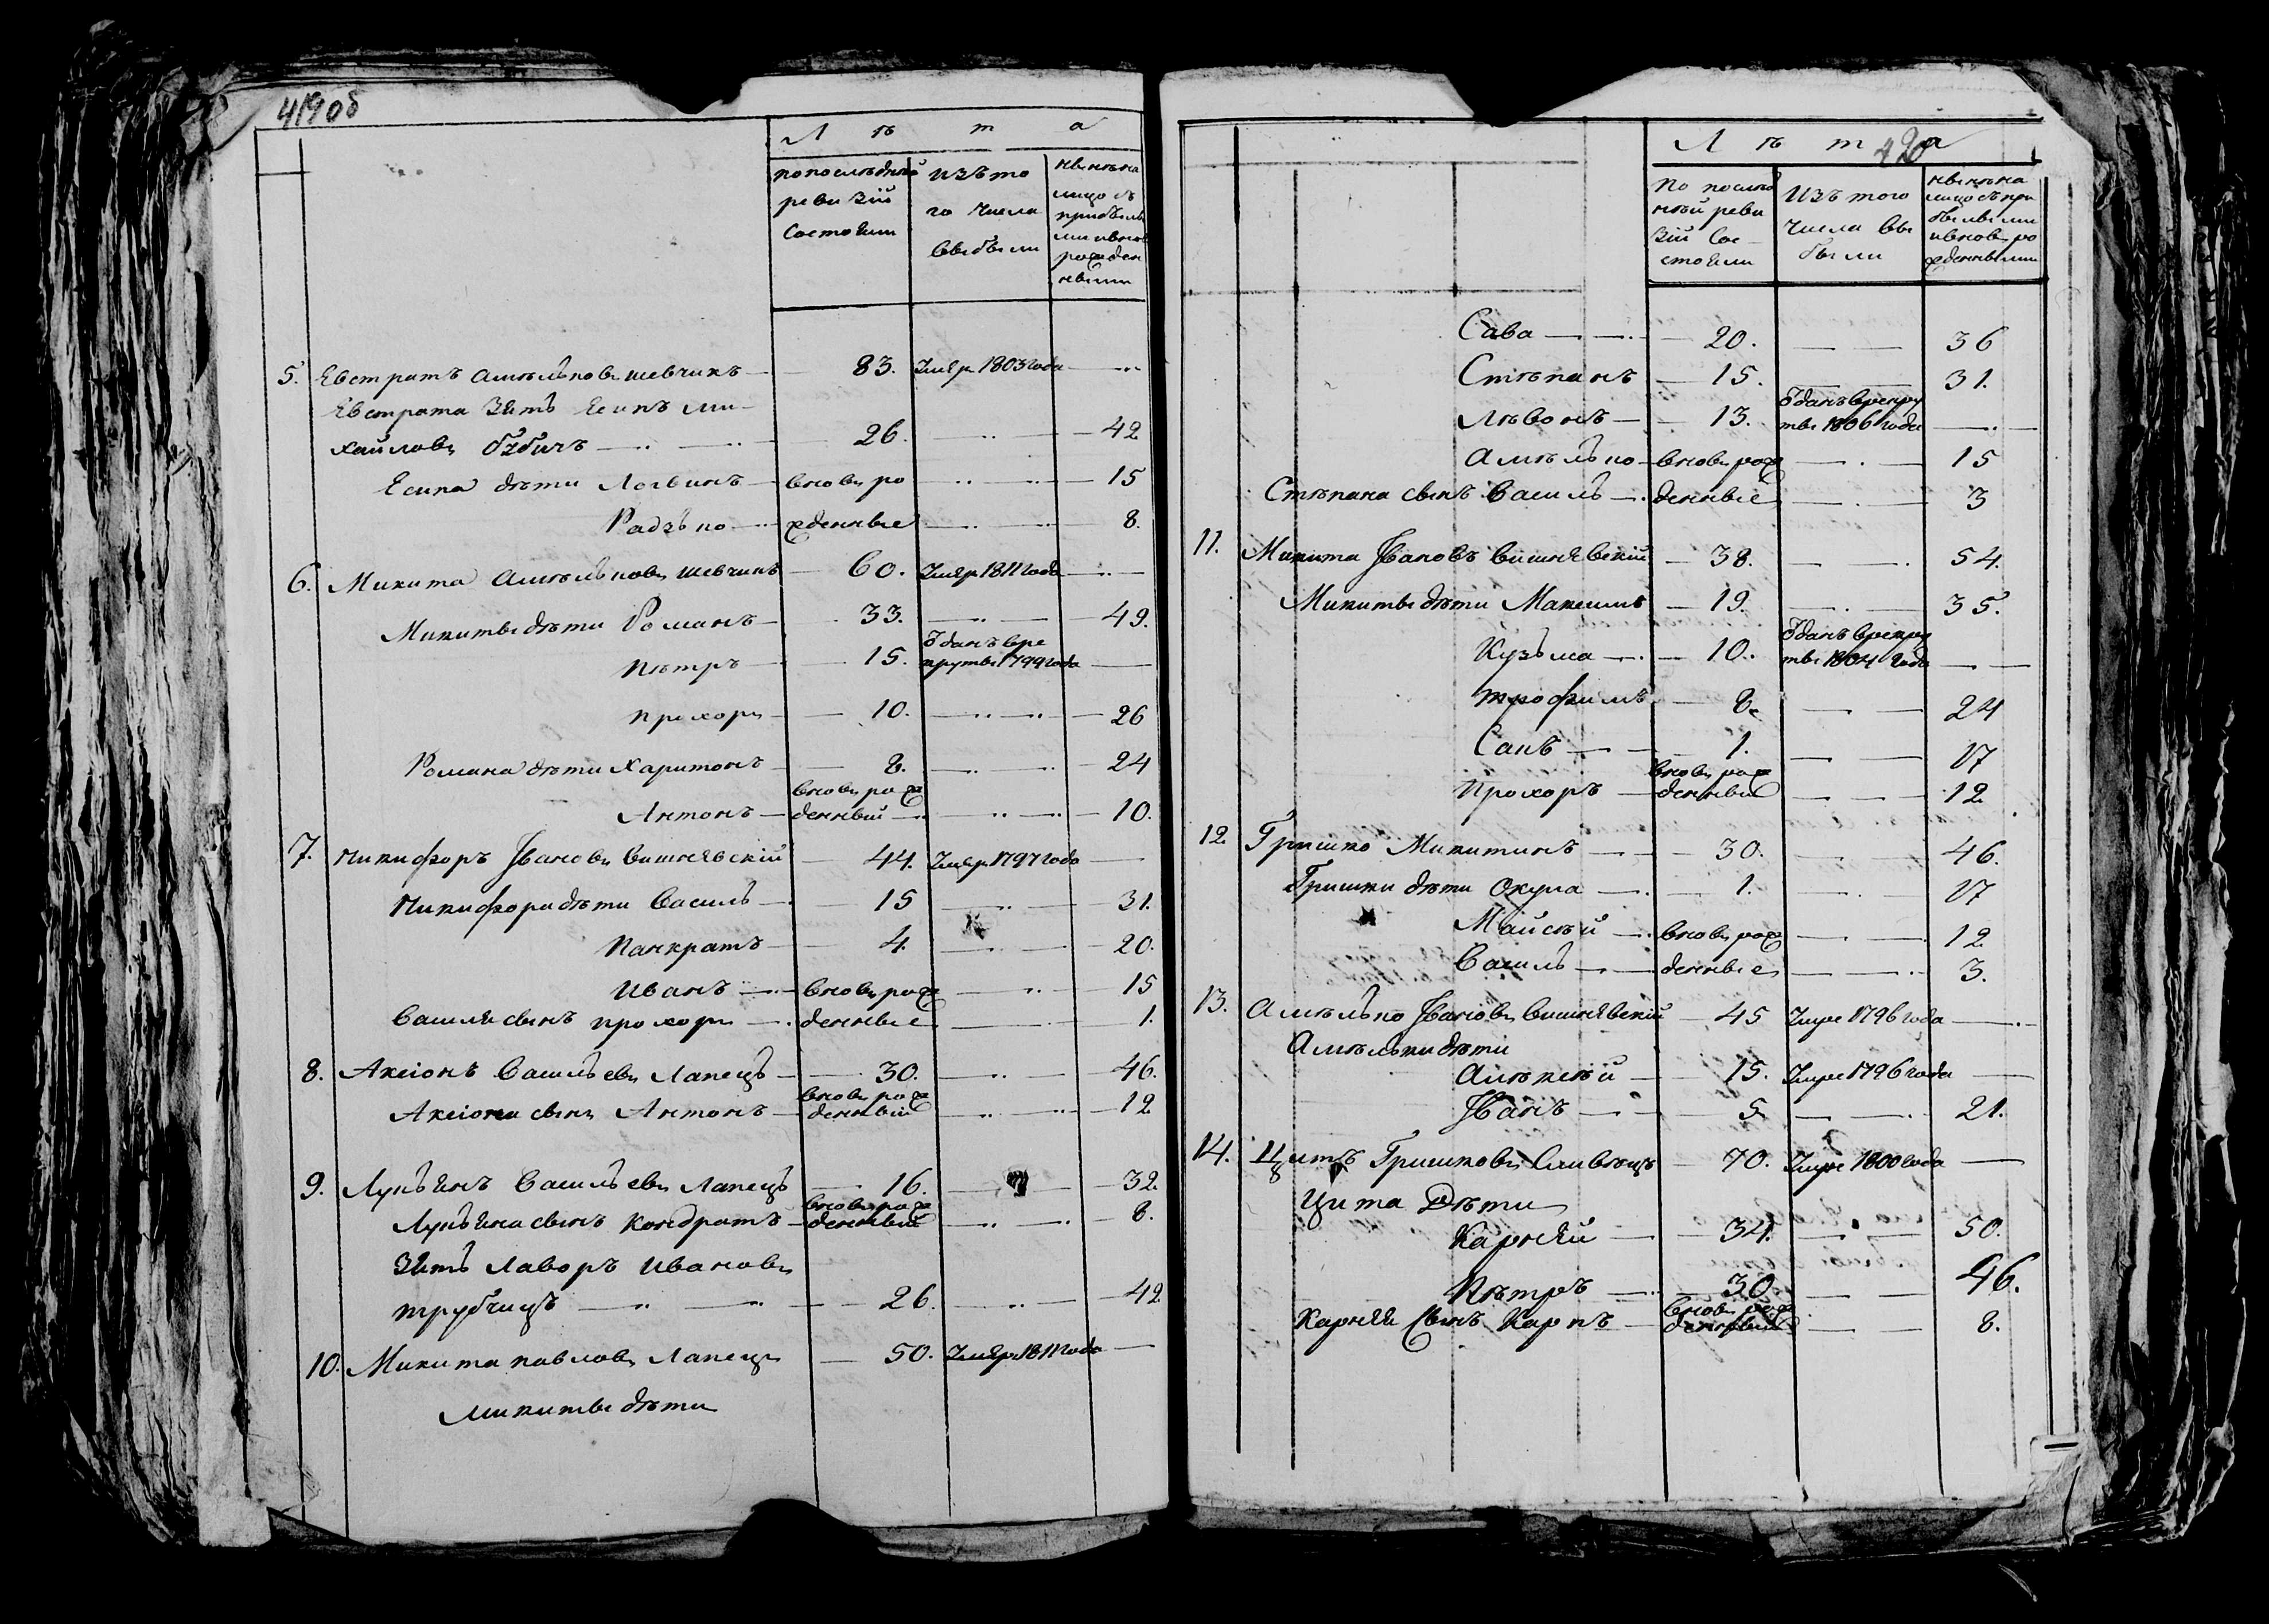 419об
Лѣта
по последней ревизiи состояли | изъ того числа выбыли | ныне на лицо съ прибылыми и вновь рожденными
5. Евстратъ Амельковъ шевчикъ — 83. Умер 1803 года — ...
Евстрата Зять Есипъ Ми-
хайловъ — 26. — 42
Есипа дѣти Логвинъ — вновь ро — 15
Радзько — жденные — 8.
6. Микита Амельковъ шевчикъ — 60. Умер 1811 года —
Микиты дѣти Романъ — 33. — 49.
Пѣтръ — 15. Одданъ в ре
круты 1799 года —
прохоръ — 10. — 26
Романа дѣти Харитонъ — 8. — 24
вновь рож
Антонъ — денный — 10.
7. Никифоръ Iвановъ Вишнявскiй — 44. Умер 1797 года —
Никифора дѣти Василь — 15 — 31.
Панкратъ — 4. — 20.
Иванъ — вновь рож — 15
Василя сынъ прохоръ — денные — 1.
8. Аксiонъ Васильевъ Лапецъ — 30. — 46.
вновь рож
Аксiона сынъ Антонъ — денный — 12
9. Лукьянъ Васильевъ Лапецъ — 16. — 32.
вновь рож
Лукьяна сынъ Кондратъ — денный — 8.
Зять Лаворъ Ивановъ
трубчицъ — 26. — 42
10. Микита павловъ Лапецъ — 50. Умер 1811 года —
микиты дѣти
420
Лѣта
По последней ревизiи состояли | Изъ того числа выбыли | ныне на лицо съ прибылыми и вновь рожденными
Сава — 20. — 36
Стѣпанъ — 15. — 31.
Одданъ в рекру
Лѣвонъ — 13. ты 1806 года —
Амѣлько — вновь рож — 15
Стѣпана сынъ Василь — денные — 3
11. Микита Iвановъ Вишнявскiй — 38. — 54.
Микиты дѣти Максимъ — 19. — 35.
Одданъ в рекру
Кузьма — 10. ты 1804 года —
трофимъ — 8. — 24
Сакъ — 1. — 17
вновь рож
Прохоръ — денный — 12
12. Гришко Микитинъ — 30. — 46.
Гришки дѣти Окула — 1. — 17
Майсѣй — вновь рож — 12
Василь — денные — 3.
13. Амѣлько Iвановъ Вишнявскiй — 45 Умре 1796 года —
Амѣльки дѣти
Алѣксѣй — 15. Умре 1796 года —
Iванъ — 5 — 21.
14. Цитъ Гришковъ Сливѣцъ — 70. Умре 1800 года —
Цита Дѣти
Карнѣй — 34. — 50.
Пѣтръ — 30 — 46.
вновь рож
Карнѣя Сынъ Карпъ — денный — 8.